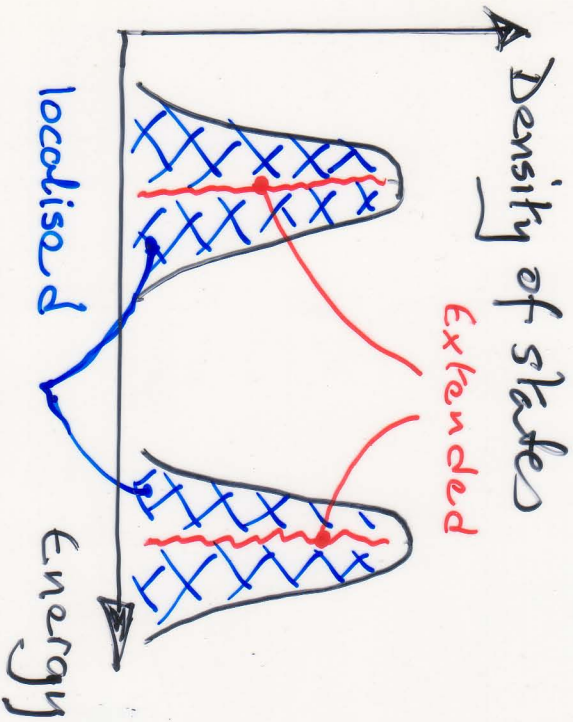 Density of states
Extended
localised
Energy